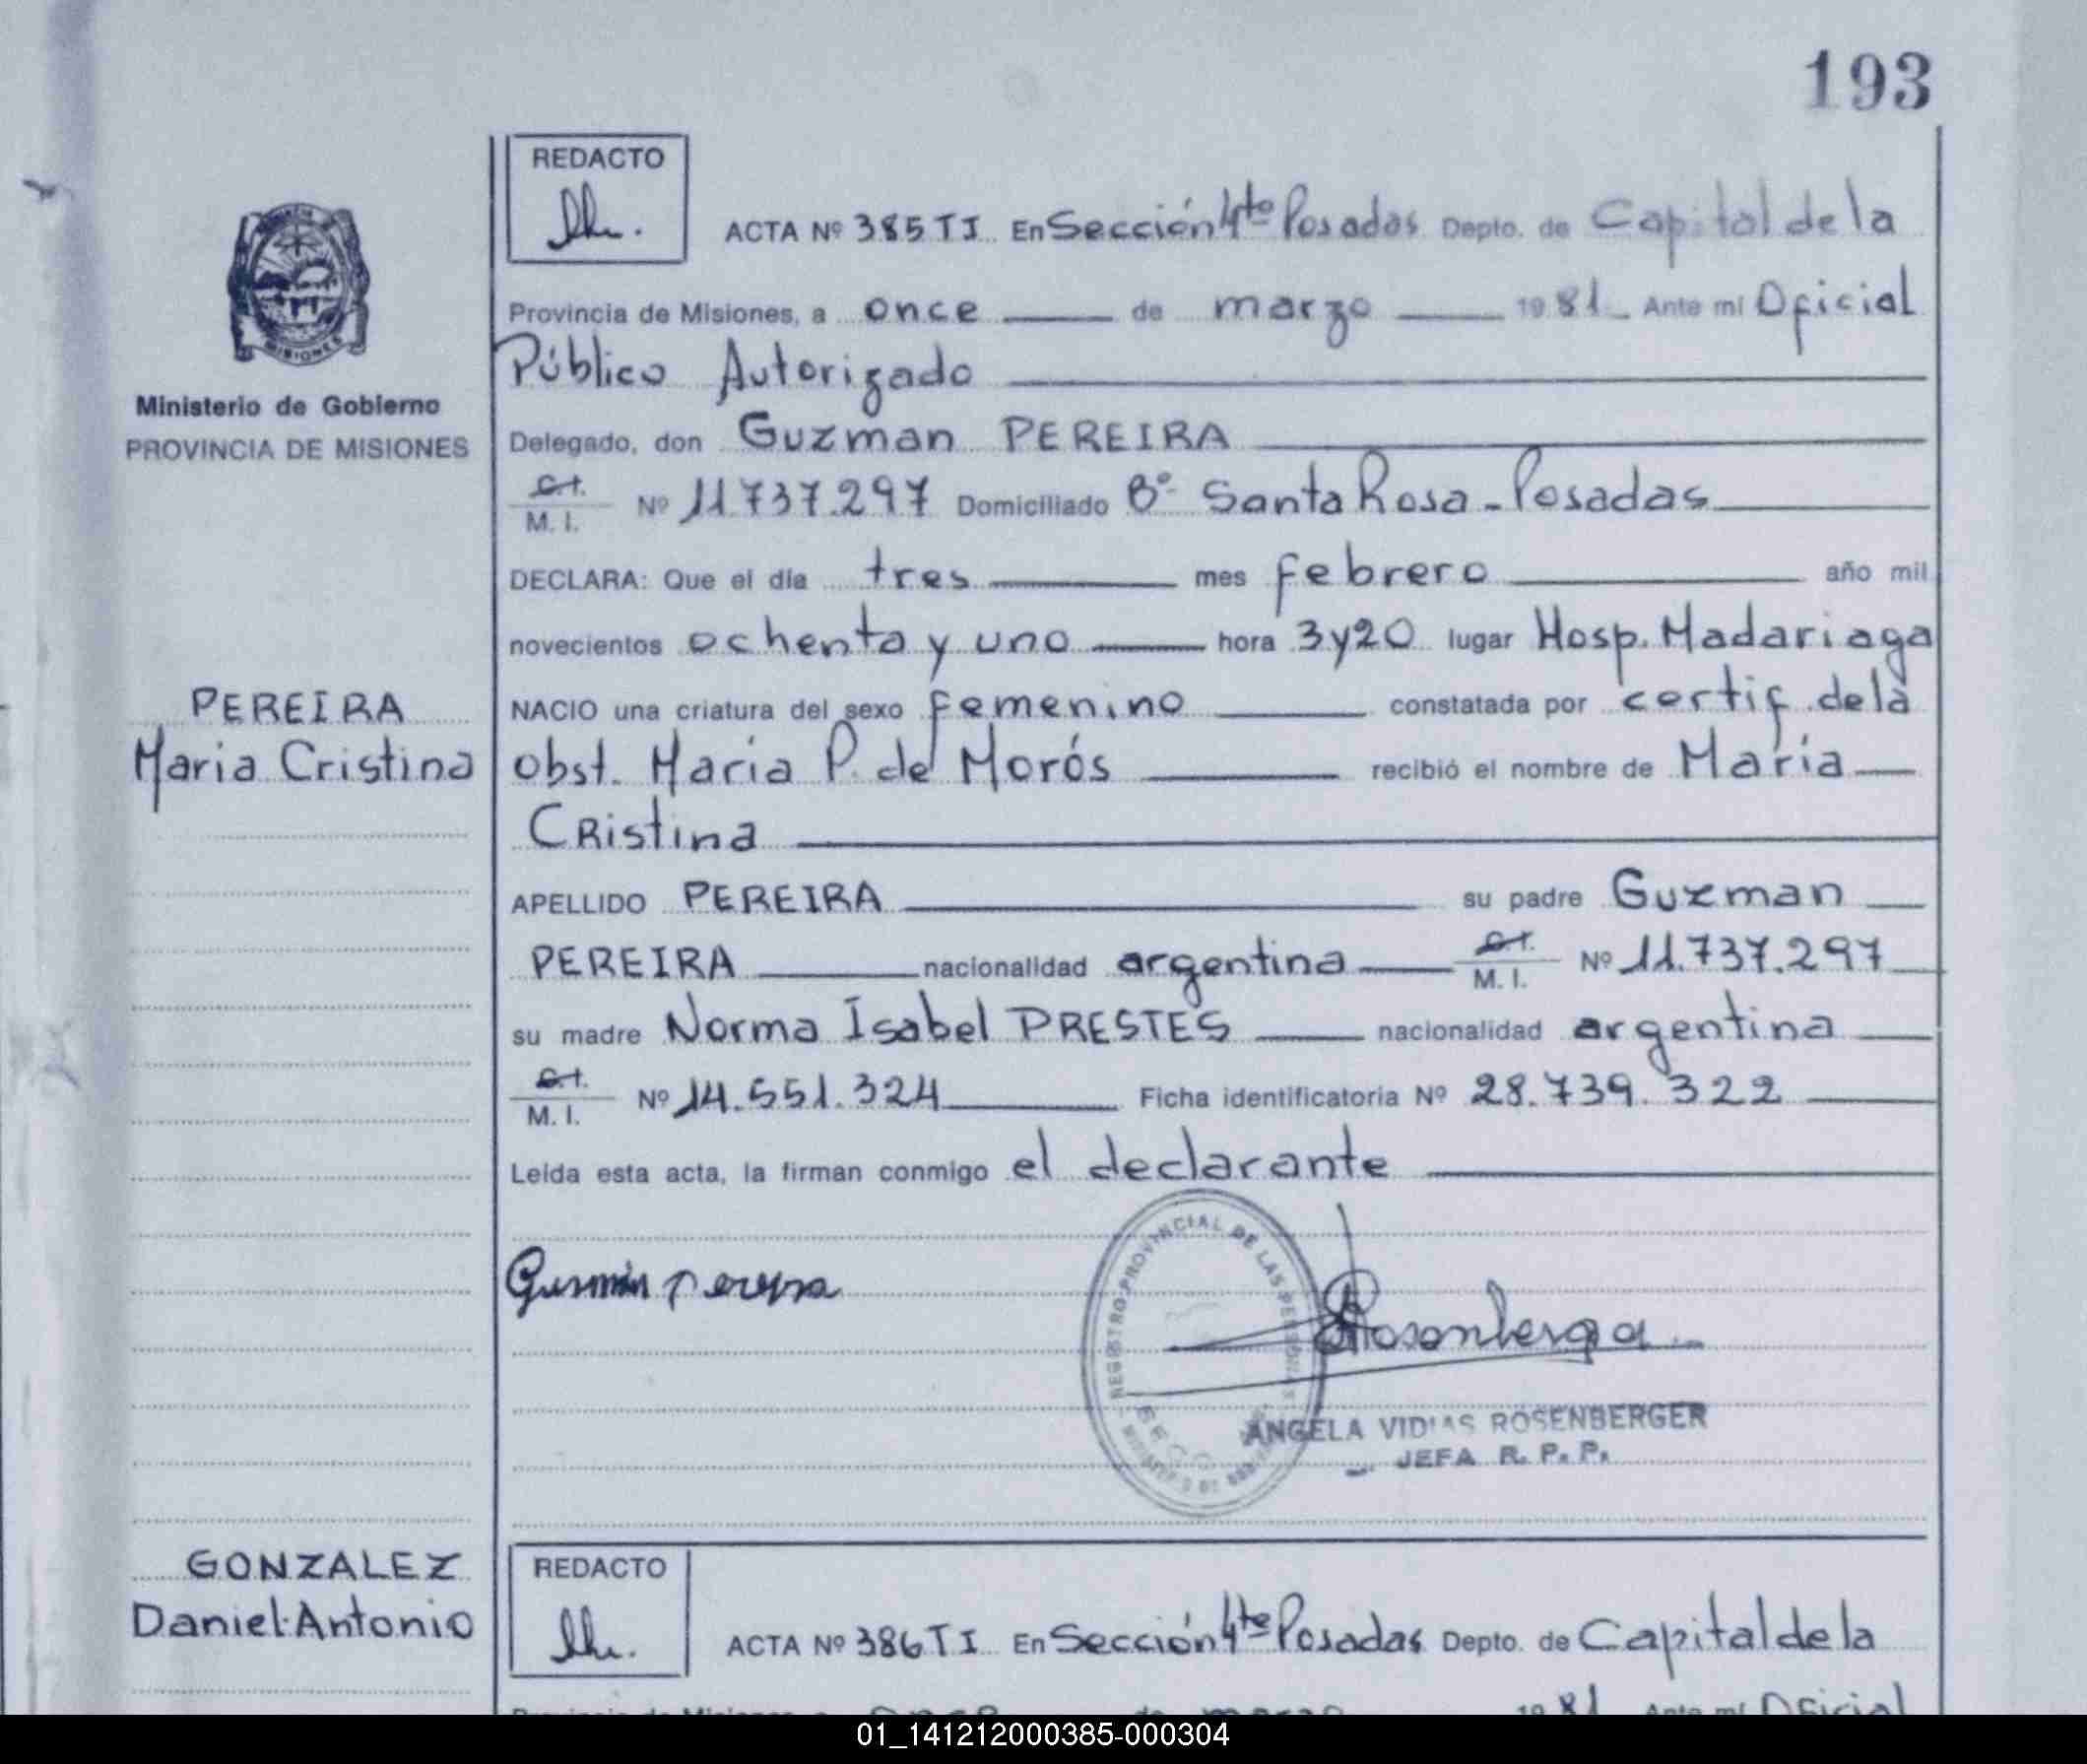 193
REDACTO
ACTA Nº 385 TI En Sección 4to Posadas Depto. de Capital de la
Provincia de Misiones, a once de marzo 1981 Ante mí Oficial
Público Autorizado
Ministerio de Gobierno
PROVINCIA DE MISIONES
Delegado, don Guzman PEREIRA
C.I.
M. I. Nº 11.737.297 Domiciliado Bº Santa Rosa - Posadas
DECLARA: Que el día tres mes febrero año mil
novecientos ochenta y uno hora 3 y 20 lugar Hosp. Madariaga
PEREIRA
Maria Cristina
NACIO una criatura del sexo femenino constatada por certif. de la
obst. Maria P. de Morós recibió el nombre de María
Cristina
APELLIDO PEREIRA su padre Guzman
PEREIRA nacionalidad argentina C.I. M. I. Nº 11.737.297
su madre Norma Isabel PRESTES nacionalidad argentina
C.I.
M. I. Nº 14.551.324 Ficha identificatoria Nº 28.739.322
Leída esta acta, la firman conmigo el declarante
REGISTRO PROVINCIAL DE LAS PERSONAS
Rosenberga
ANGELA VIDIAS ROSENBERGER
JEFA R. P. P.
GONZALEZ
Daniel Antonio
REDACTO
ACTA Nº 386 TI En Sección 4te Posadas Depto. de Capital de la
Provincia de Misiones, a once de marzo 1981 Ante mí Oficial
01_141212000385-000304